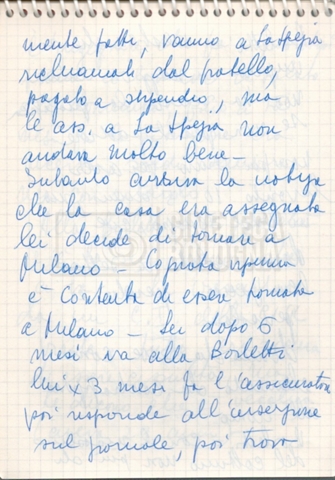 mente fatti, vanno a La Spezia
richiamati dal fratello,
pagato a stipendio, ma
le ass. a La Spezia non
andava molto bene -
Subito arriva la notizia
che la casa era assegnata
lei decide di tornare a
Milano -
è contenta di esser tornata
a Milano - Lei dopo 6
mesi va alla Borletti
lui x 3 mesi fa l'assicuratore
poi risponde all'inserzione
sul giornale, poi trova